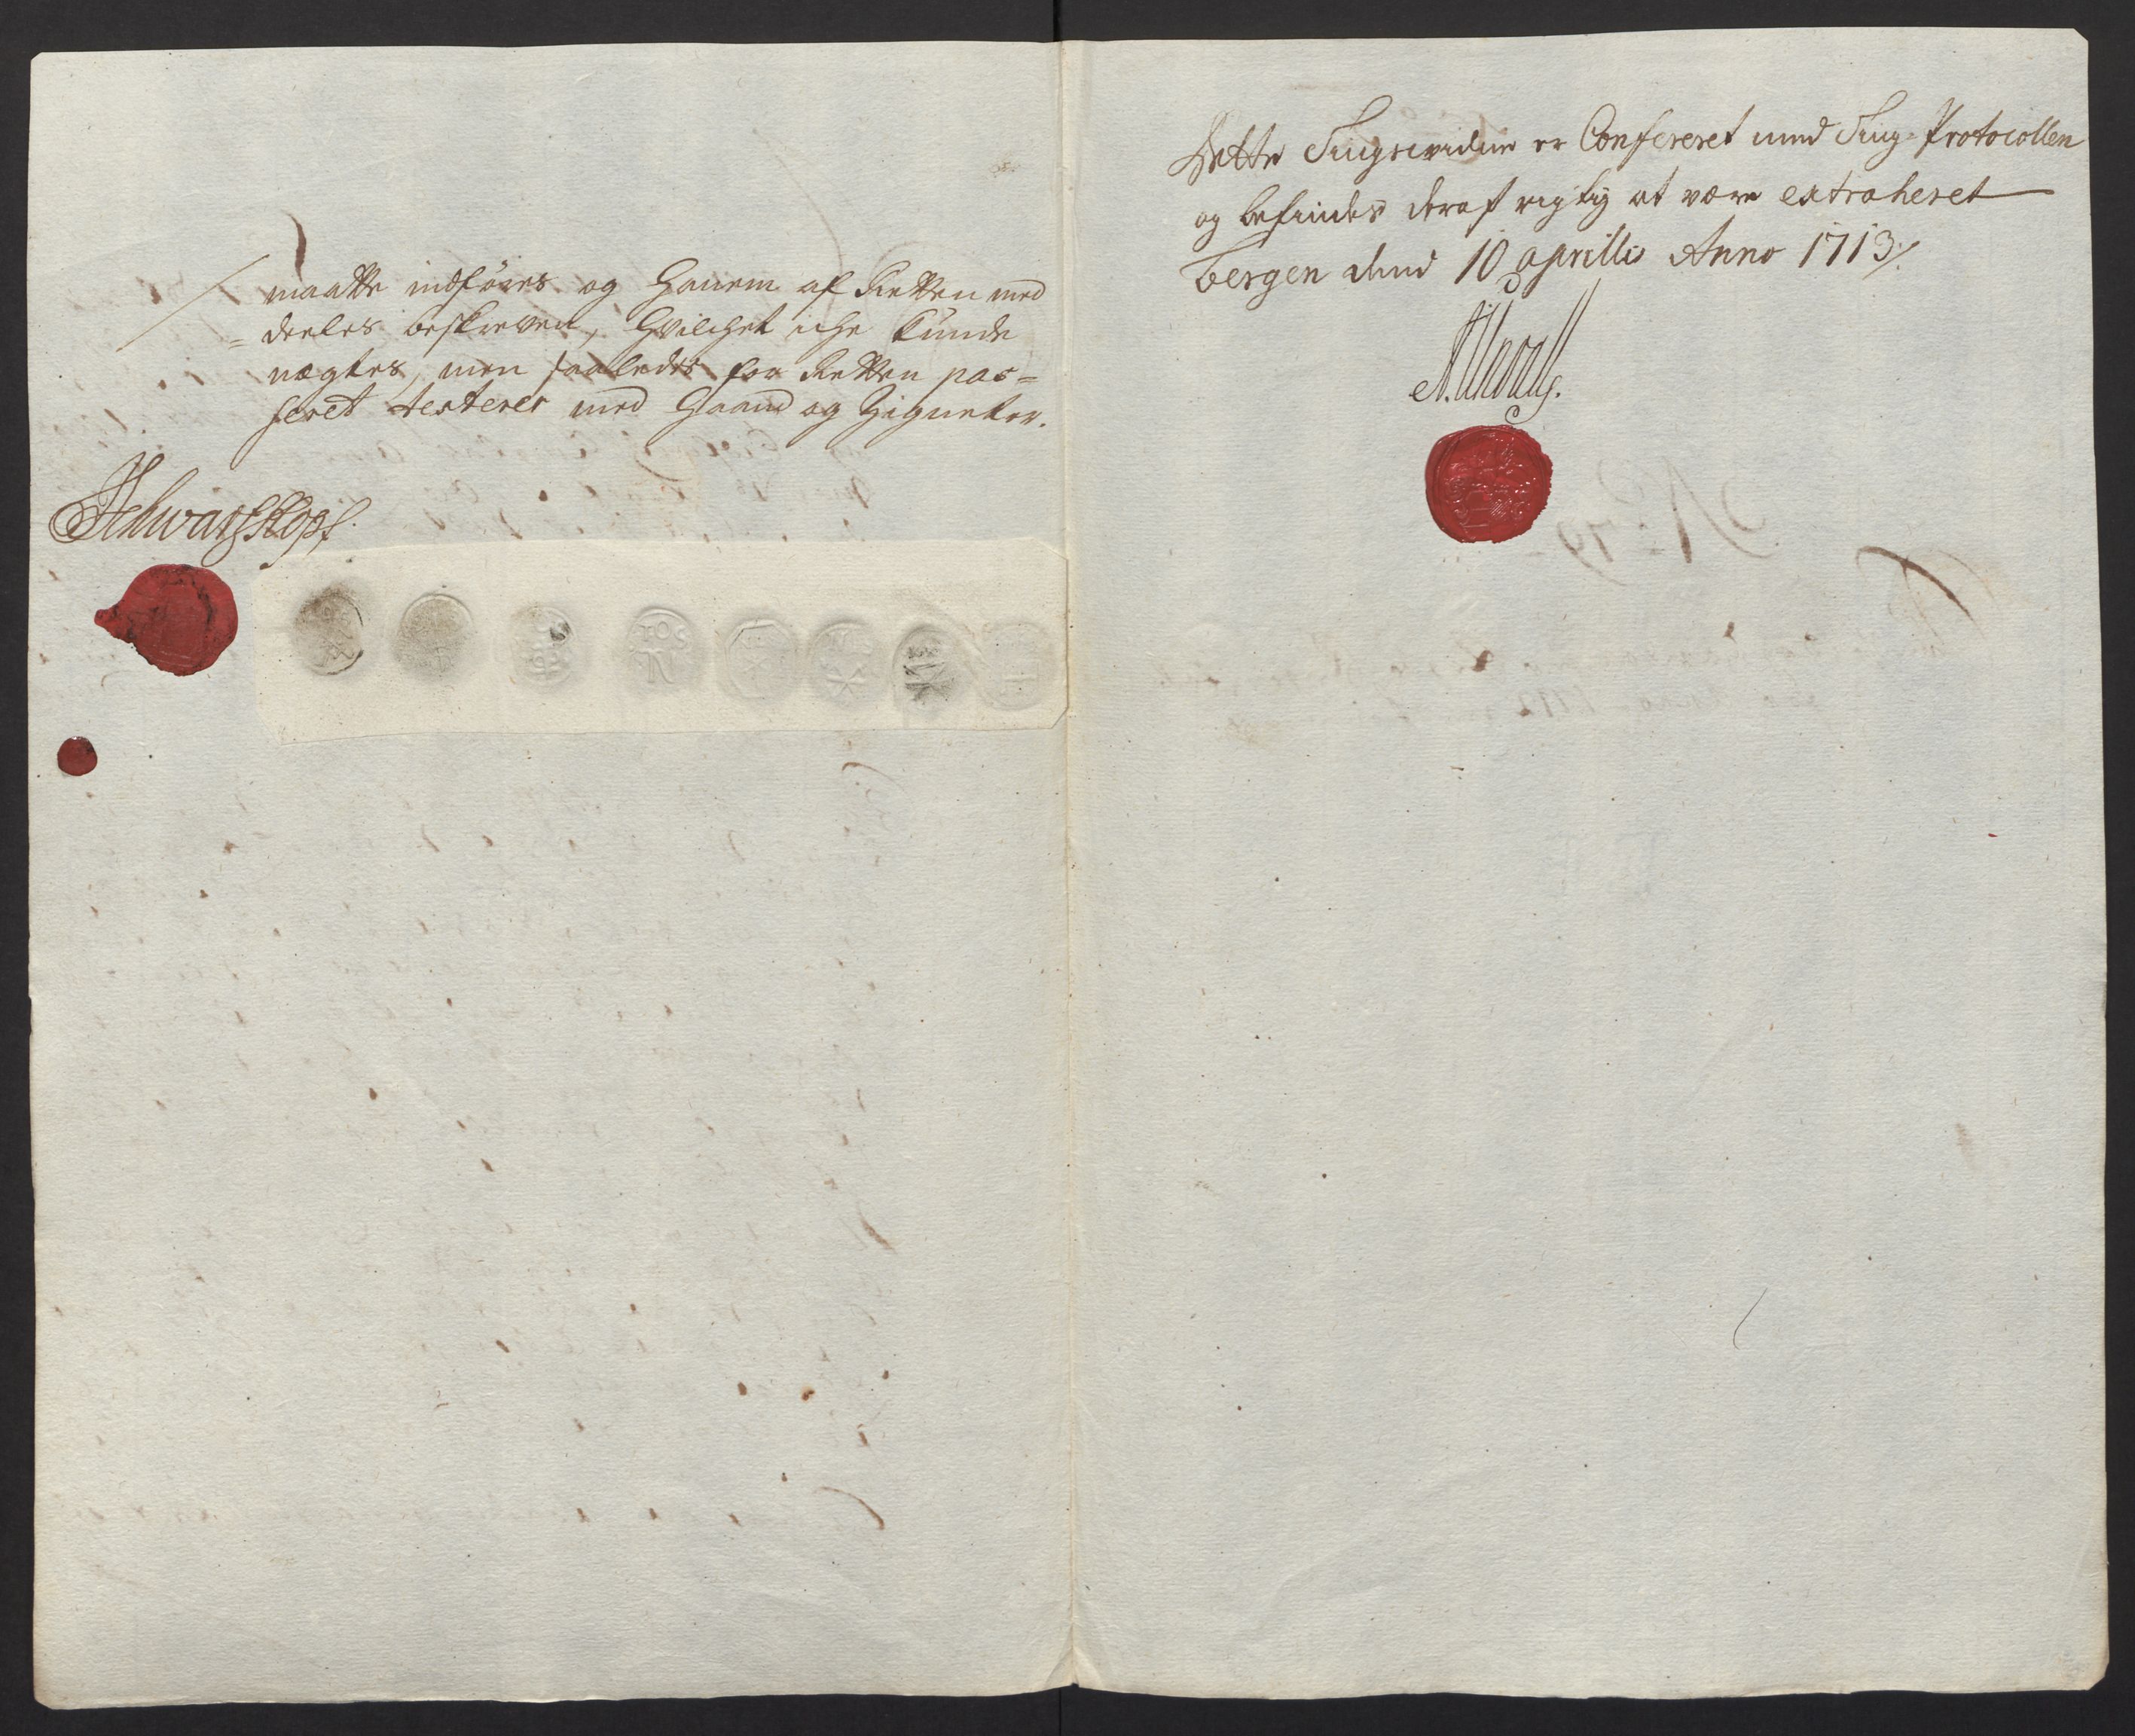 maatte indføres og hannem af Retten med
= deeles beskreven, hvilchet iche kunde
nægtes, men saaledis for Retten pas=
seret testerer med haand og Zigneter.
Schwartzkopf.
TOS
Dette Tingsvidne er Confereret med Ting-Protocollen
og befindes deraf rigtig at være extraheret
Bergen dend 10 aprillis Anno 1713
No 79